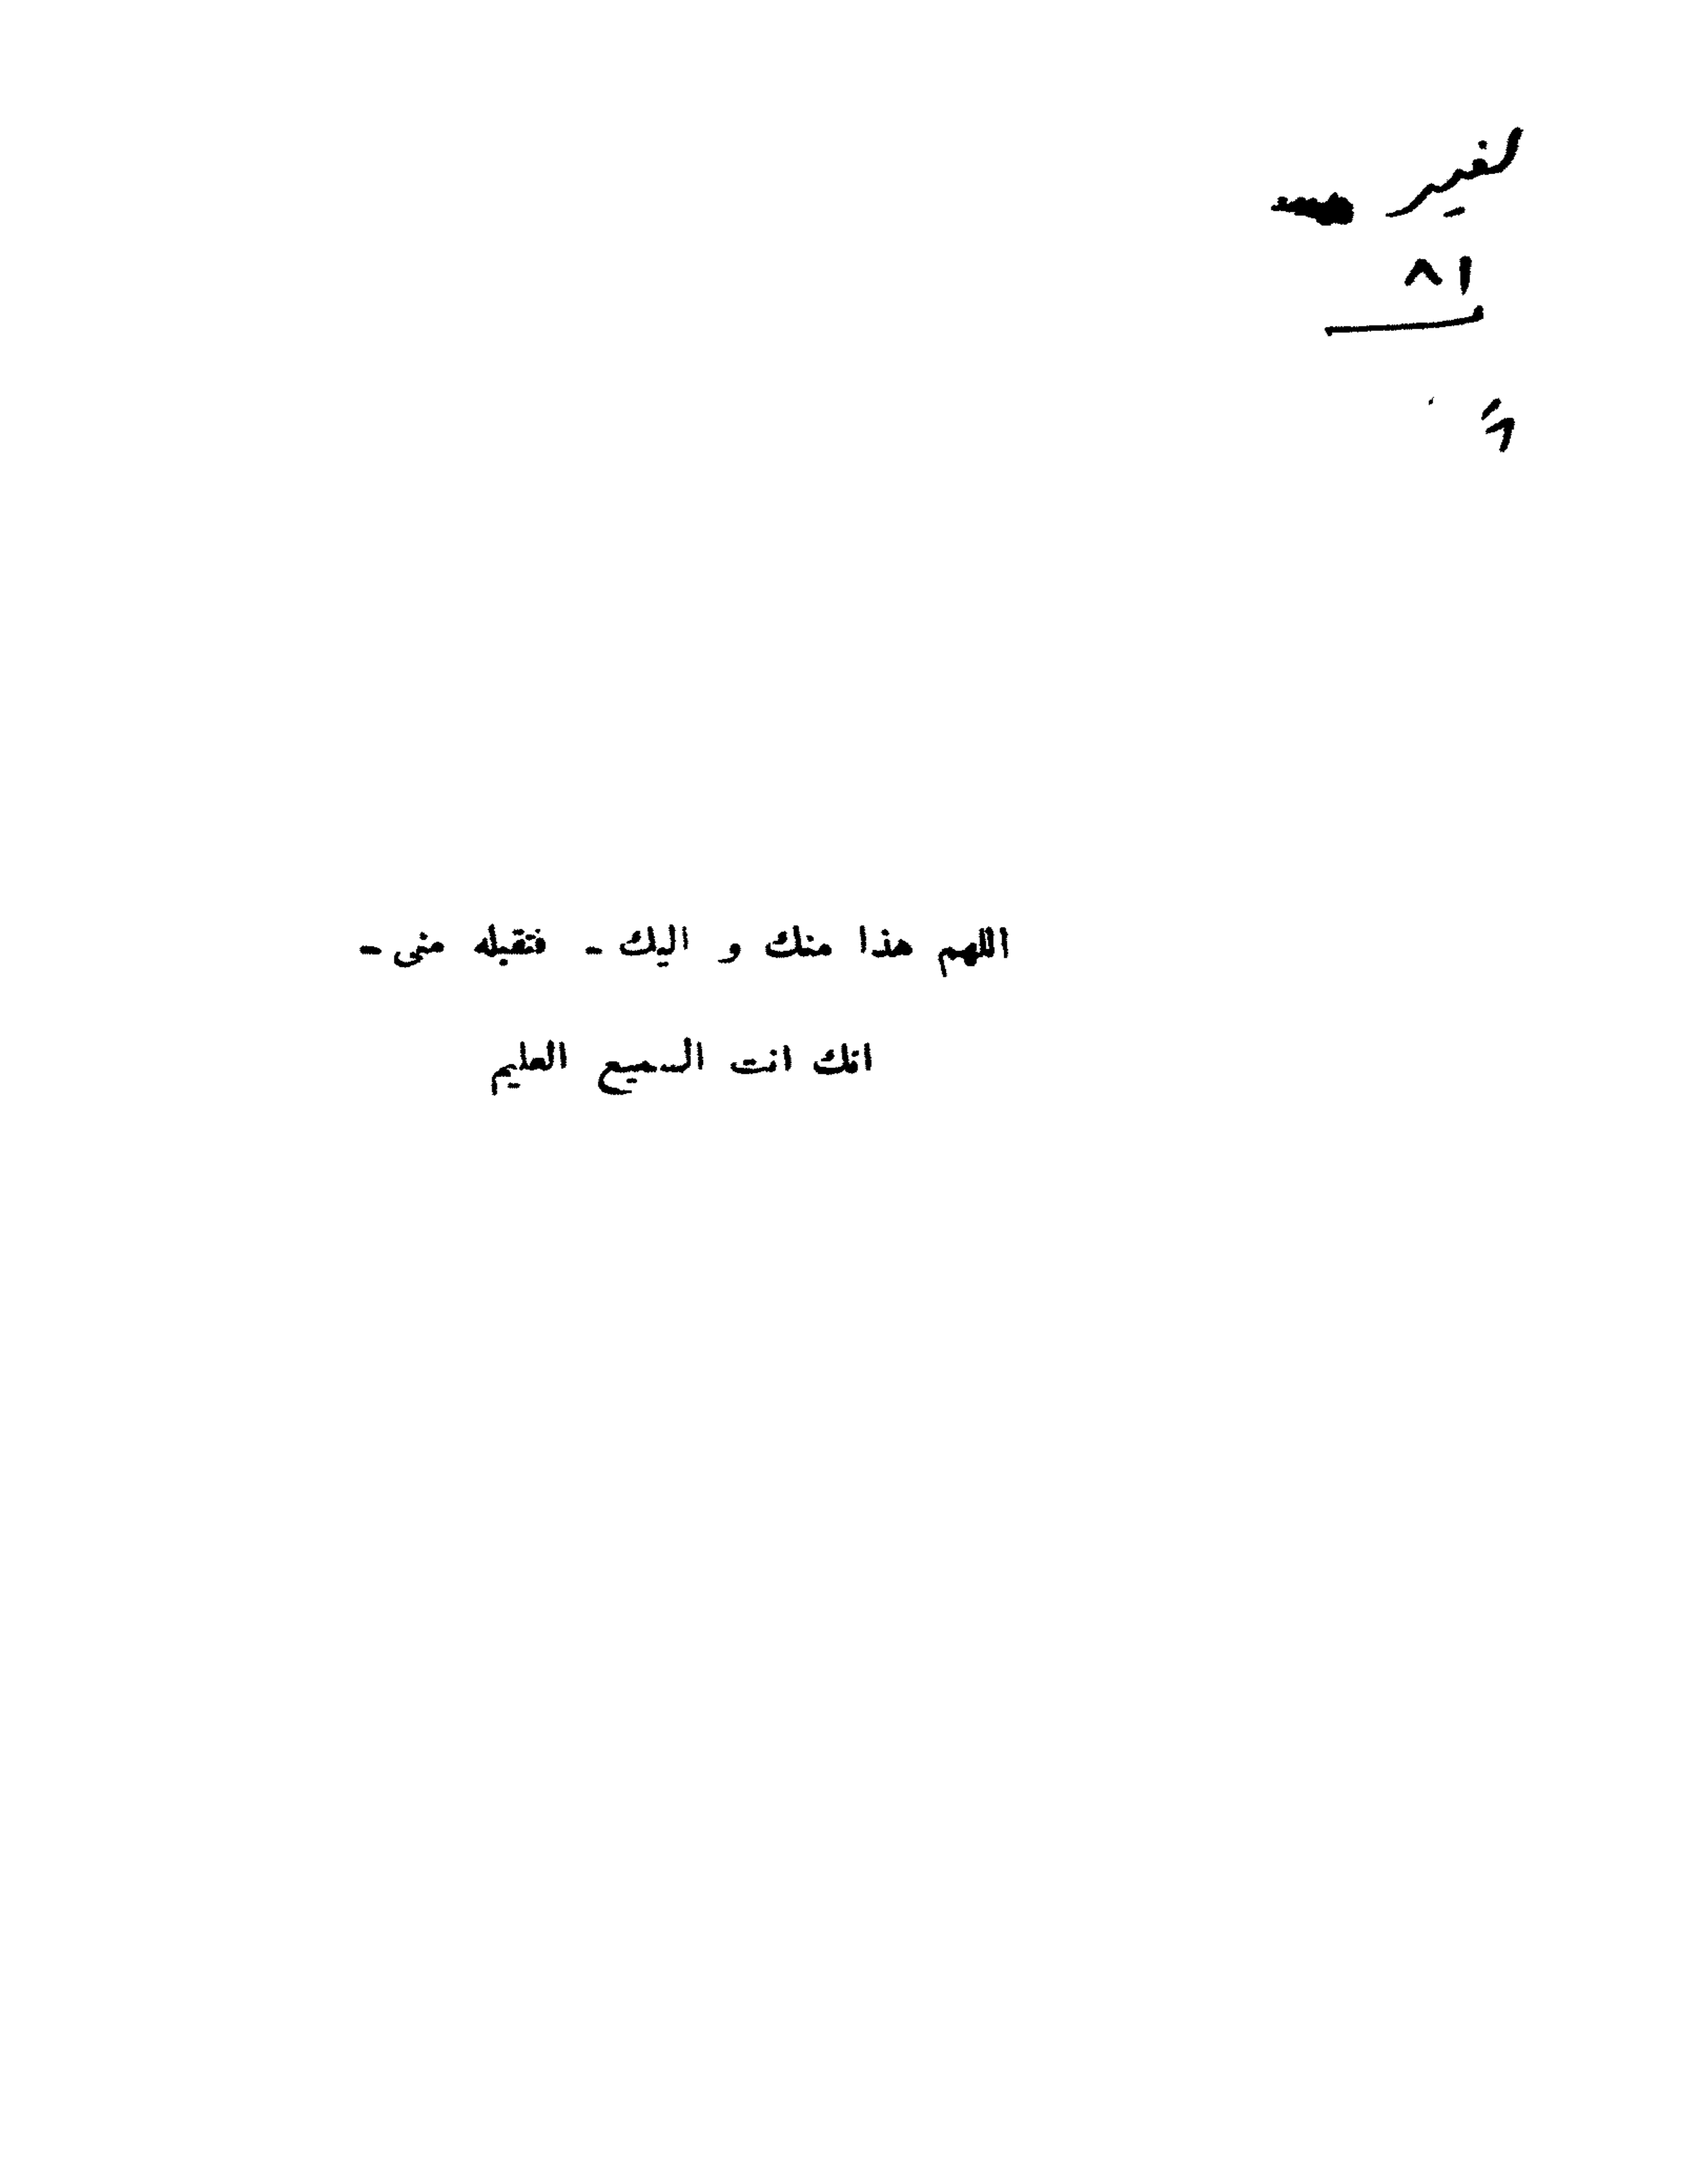 ٨١
اللهم هذا منك و اليك - فتقبله منى -
انك انت السميع العليم